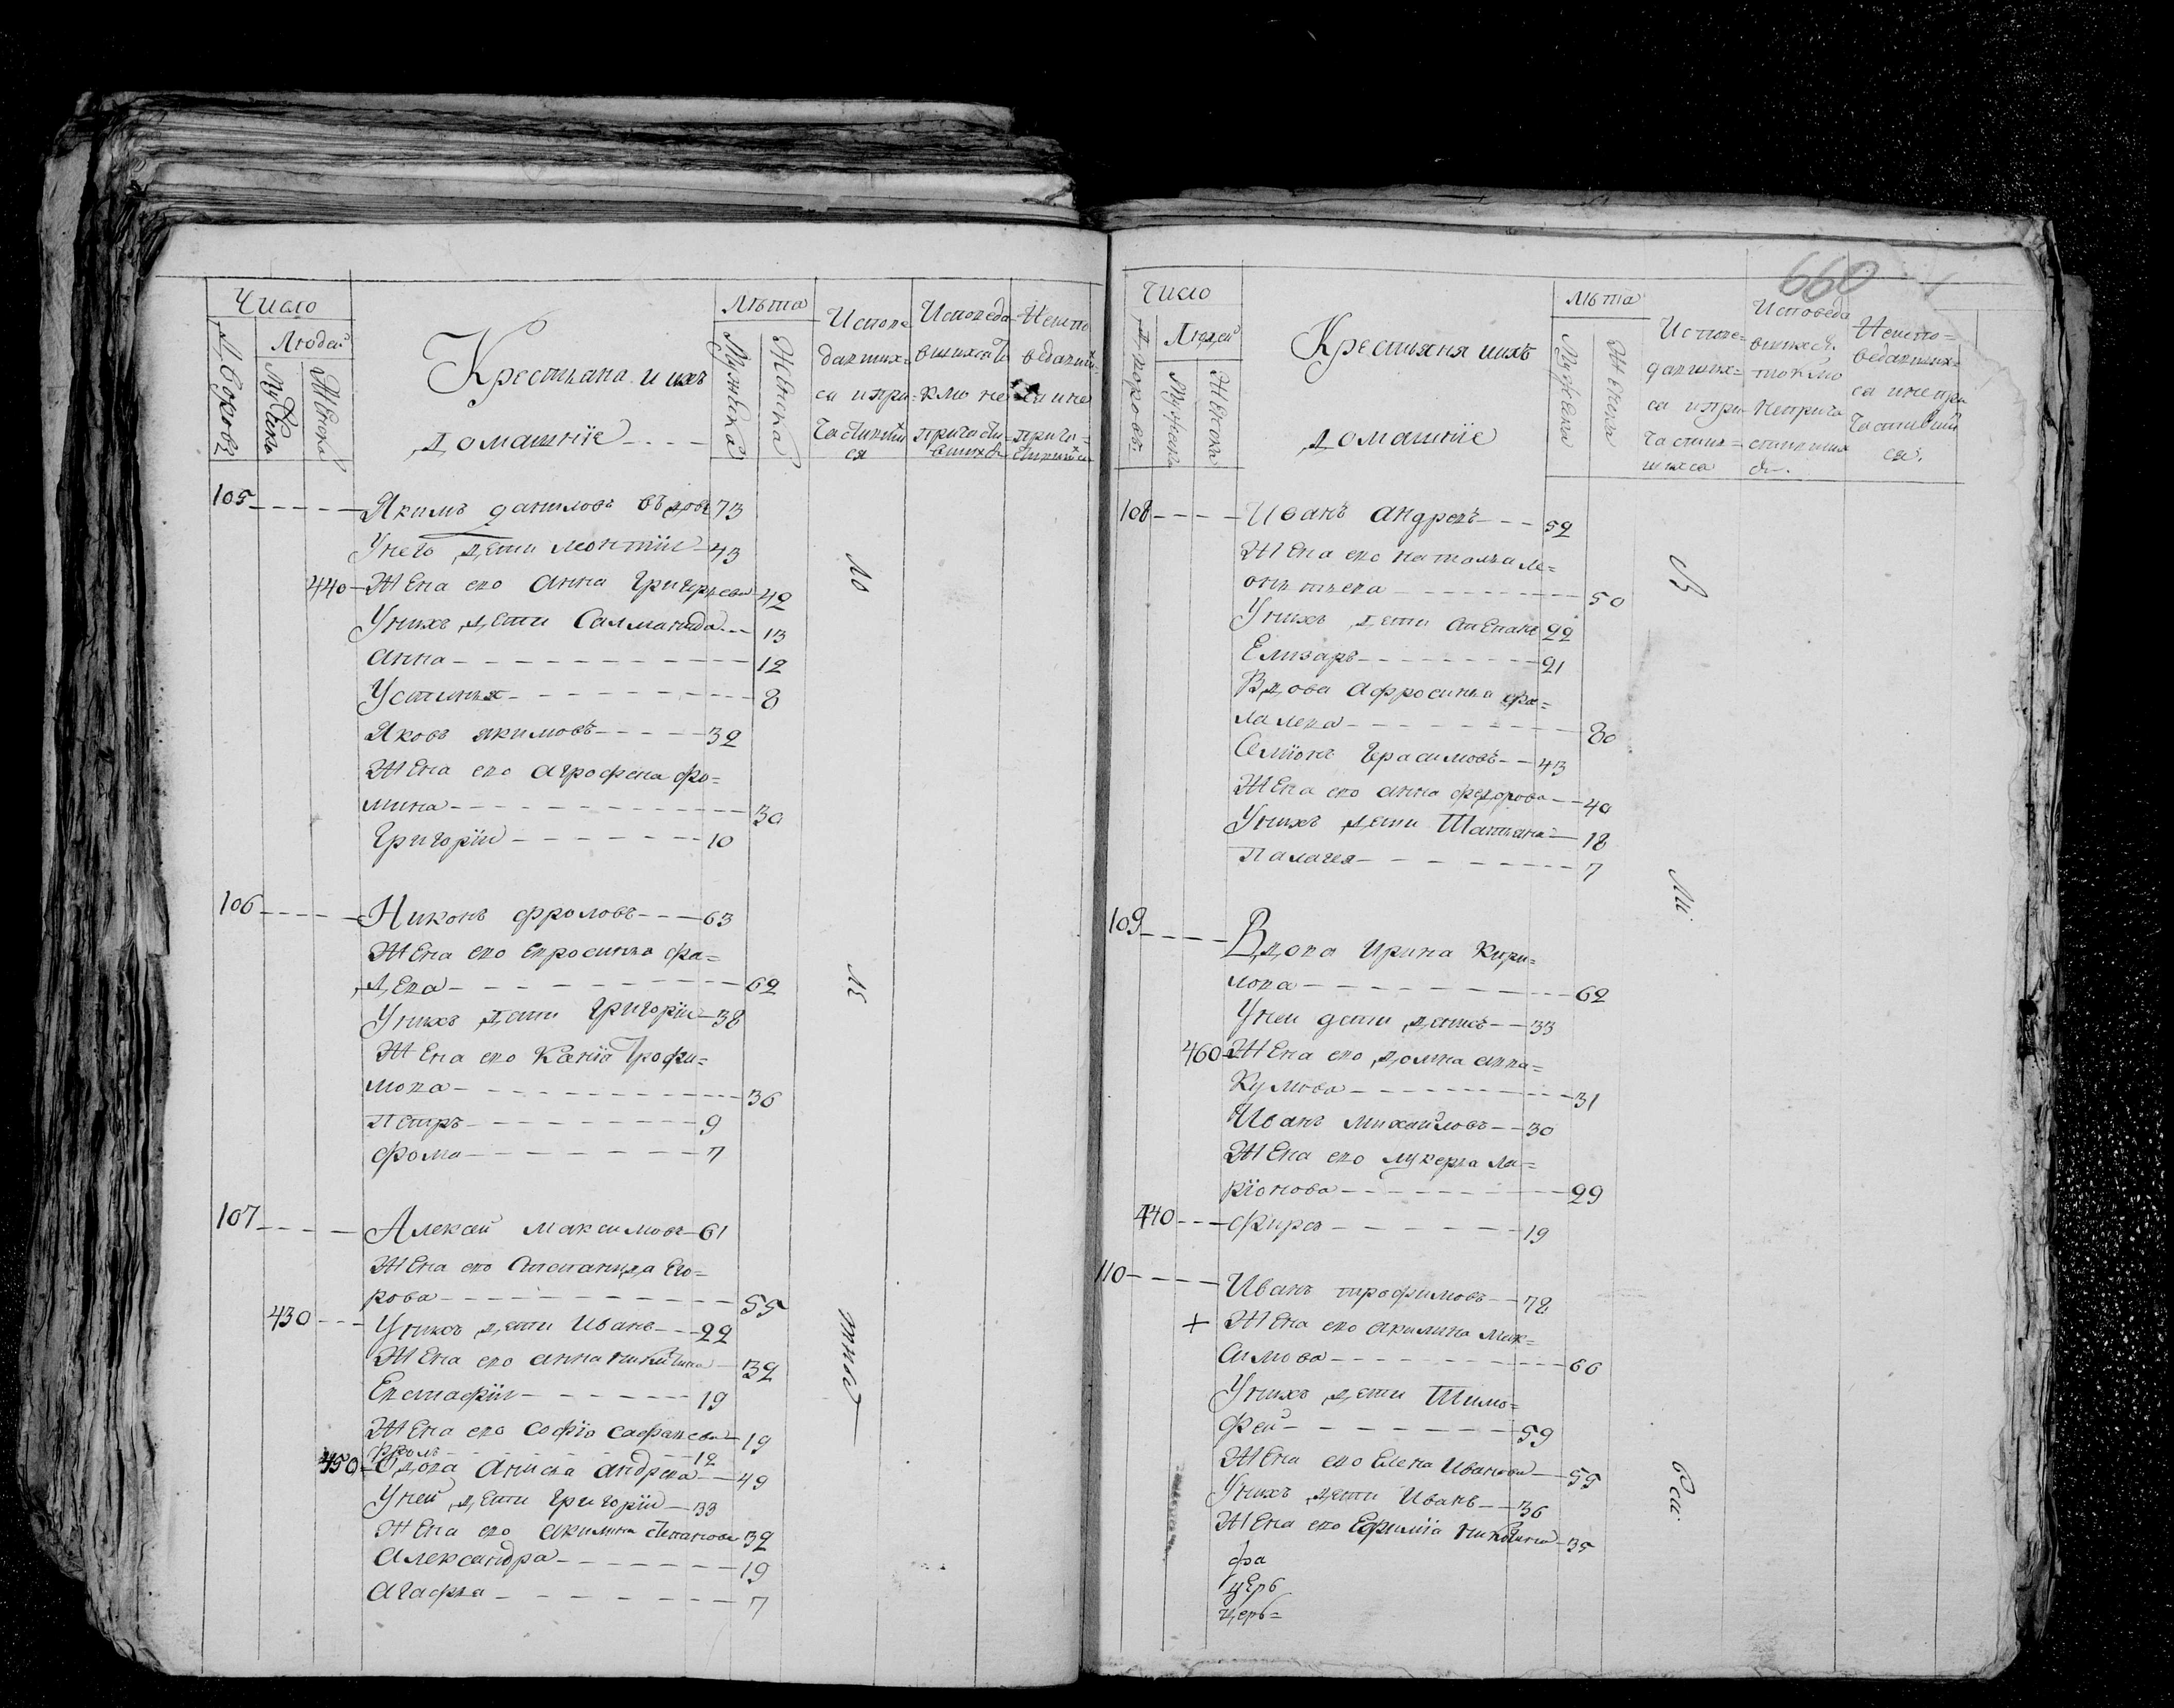 Число
Людей
Дворовъ
Мужска
Женска
Крестьяна и ихъ
домашнïе
Лѣта
Мужеска
Женска
Испове
давших=
ся и при=
частивши
ся
Исповеда
вшихся то
кмо не
причасти
вшихся
Неиспо
ведавши
ся и не
прича=
стившися
105 Якимъ даниловъ вдовъ 73
У него дети леонтïи 43
440 Жена ево Анна Григорьева 42
У нихъ дети Саламанида 13
Анна 12
Устинья 8
Яковъ якимовъ 32
Жена ево агрофена фо=
мина 30
Григорïи 10
106 Никонъ фроловъ 63
Жена ево Евросинья фа=
деева 62
У нихъ дети Григорïи 38
Жена ево Трофи=
мова 36
Петръ 9
фома 7
107 Алексаи максимовъ 61
Жена ево Степанида Его=
рова 55
430 У нихъ дети Иванъ 22
Жена ево анна никитина 32
Евстафïи 19
Жена ево софïа 19
фролъ 12
450 Вдова Анисья андреева 49
У ней дети Григорïи 33
Жена ево акилина степанова 32
Александра 19
Агафья 7
660
Число
Людей
Дворовъ
Мужеска
Женска
Крестьяня ихъ
домашнïе
Лѣта
Мужеска
Женска
Испове=
давших=
ся и при
частив=
шихся
Исповеда
вшихся
токмо
неприча
стивших
ся
Неиспо=
ведавших=
ся и непри
частивши
ся
108 Иванъ андреевъ 52
Жена ево наталья ле=
онтьева 50
У нихъ дети степанъ 22
Елизаръ 21
Вдова афросинья
80
Семïонъ Герасимовъ 43
Жена ево анна федорова 40
У нихъ дети Татьяна 18
Палагея 7
109 Вдова Ирина Кири=
лова 62
У неи дети денисъ 33
460 Жена ево домна авва=
кумова 31
Иванъ михаиловъ 30
Жена ево лукерья ла=
рïонова 29
440 фирсъ 19
110 Иванъ трофимовъ 78
+ Жена ево акилина мак=
симова 66
У нихъ дети Тимо=
феи 59
Жена ево Елена Иванова 55
У нихъ дети Иванъ 36
Жена ево Ефимïа никитина 35
фа
церб
церб=